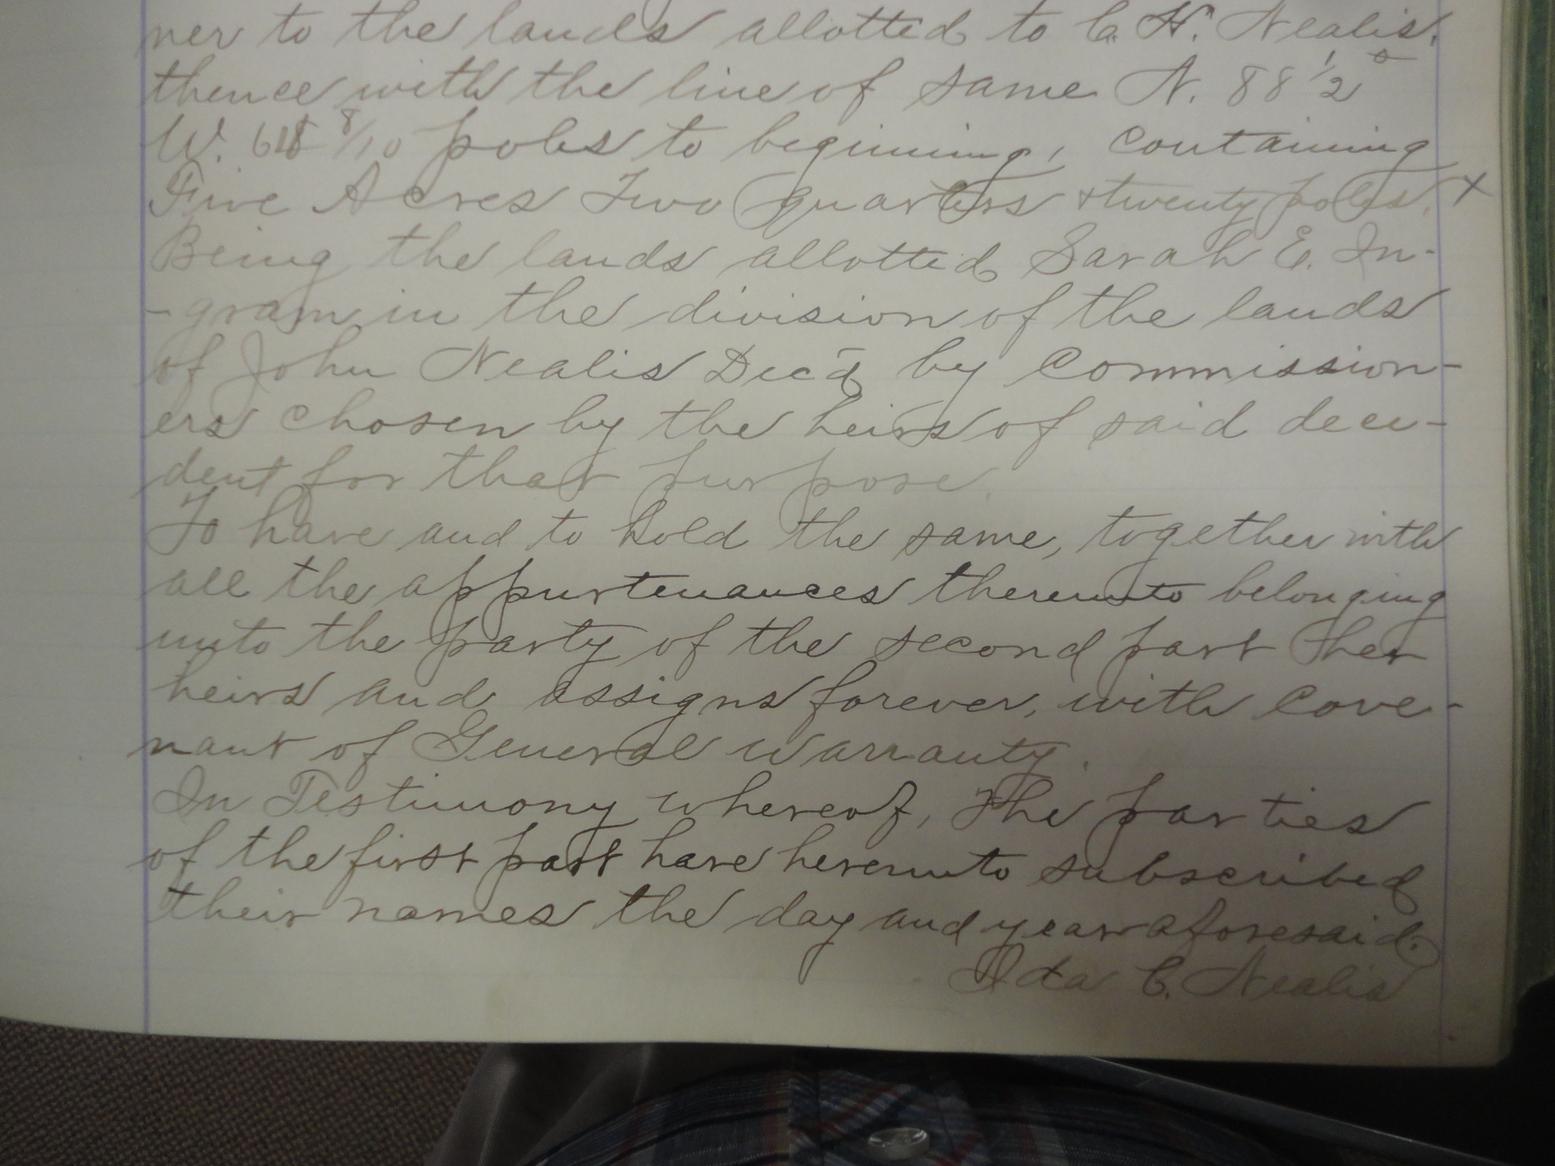 ner to the lands allotted to C. H. Nealis,
thence with the line of same N. 88 1/2°
W. 8/10 poles to beginning, containing
Five Acres Two quarters & twenty poles. x
Being the lands allotted Sarah E. In-
-gram in the division of the lands
of John Nealis Dec'd by Commission-
ers chosen by the heirs of said dece-
dent for that purpose.
To have and to hold the same, together with
all the appurtenances thereunto belonging
unto the party of the second part her
heirs and assigns forever, with Cove-
nant of General Warranty.
In Testimony whereof, The parties
of the first part have hereunto subscribed
their names the day and year aforesaid.
Ida C. Nealis